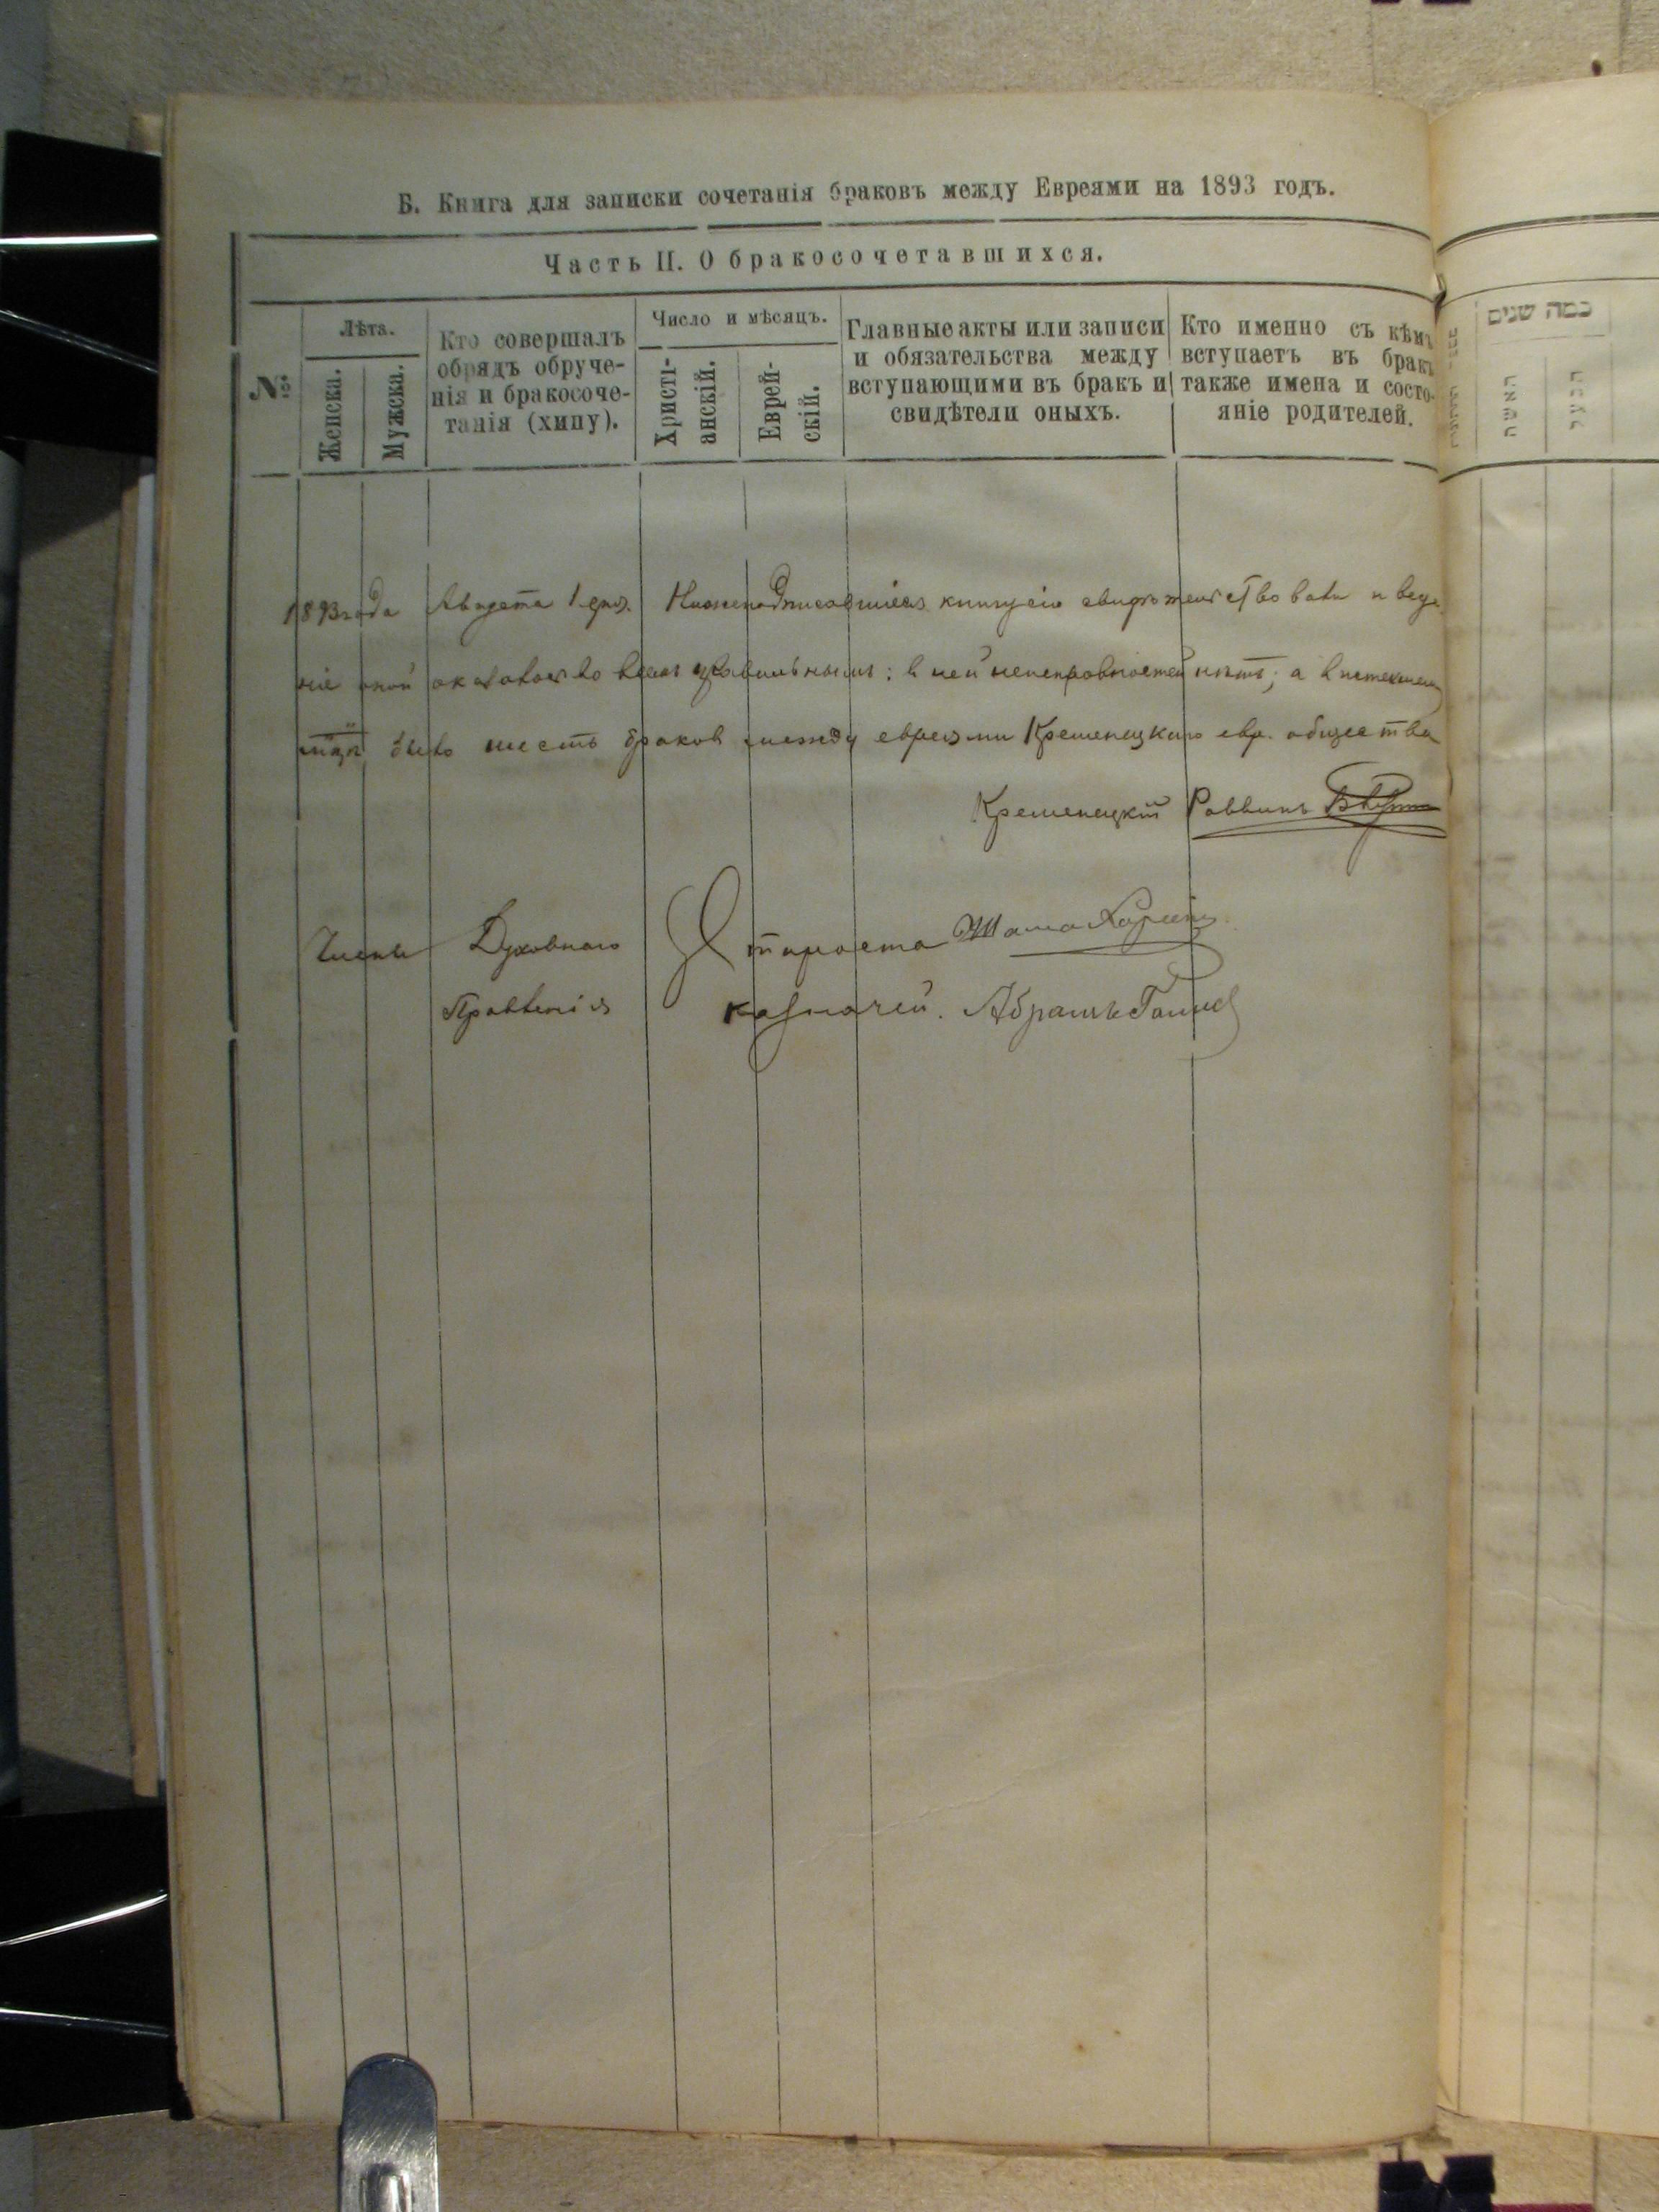 Б. Книга для записки сочетанія браковъ между Евреями на 1893 годъ.
Часть II. О бракосочетавшихся.
№
Лѣта.
Женска.
Мужска.
Кто совершалъ
обрядъ обруче-
нія и бракосоче-
танія (хипу).
Число и мѣсяцъ.
Христі-
анскій.
Еврей-
скій.
Главные акты или записи
и обязательства между
вступающими въ бракъ и
свидѣтели оныхъ.
Кто именно съ кѣмъ
вступаетъ въ бракъ
также имена и состо-
яніе родителей.
כמה שנים
האשה
1893 года Августа 1 дня. Нижеподписавшіеся книгу сію свидѣтельствовали и веде
ніе оной оказалось во всемъ правильнымъ; в ней неисправностей нѣтъ; а в истекшемъ
было шесть браков между евреями Кременецкаго евр. общества
Кременецкій Раввинъ
Члены Духовнаго Староста
Правленія казначей. Абрамъ